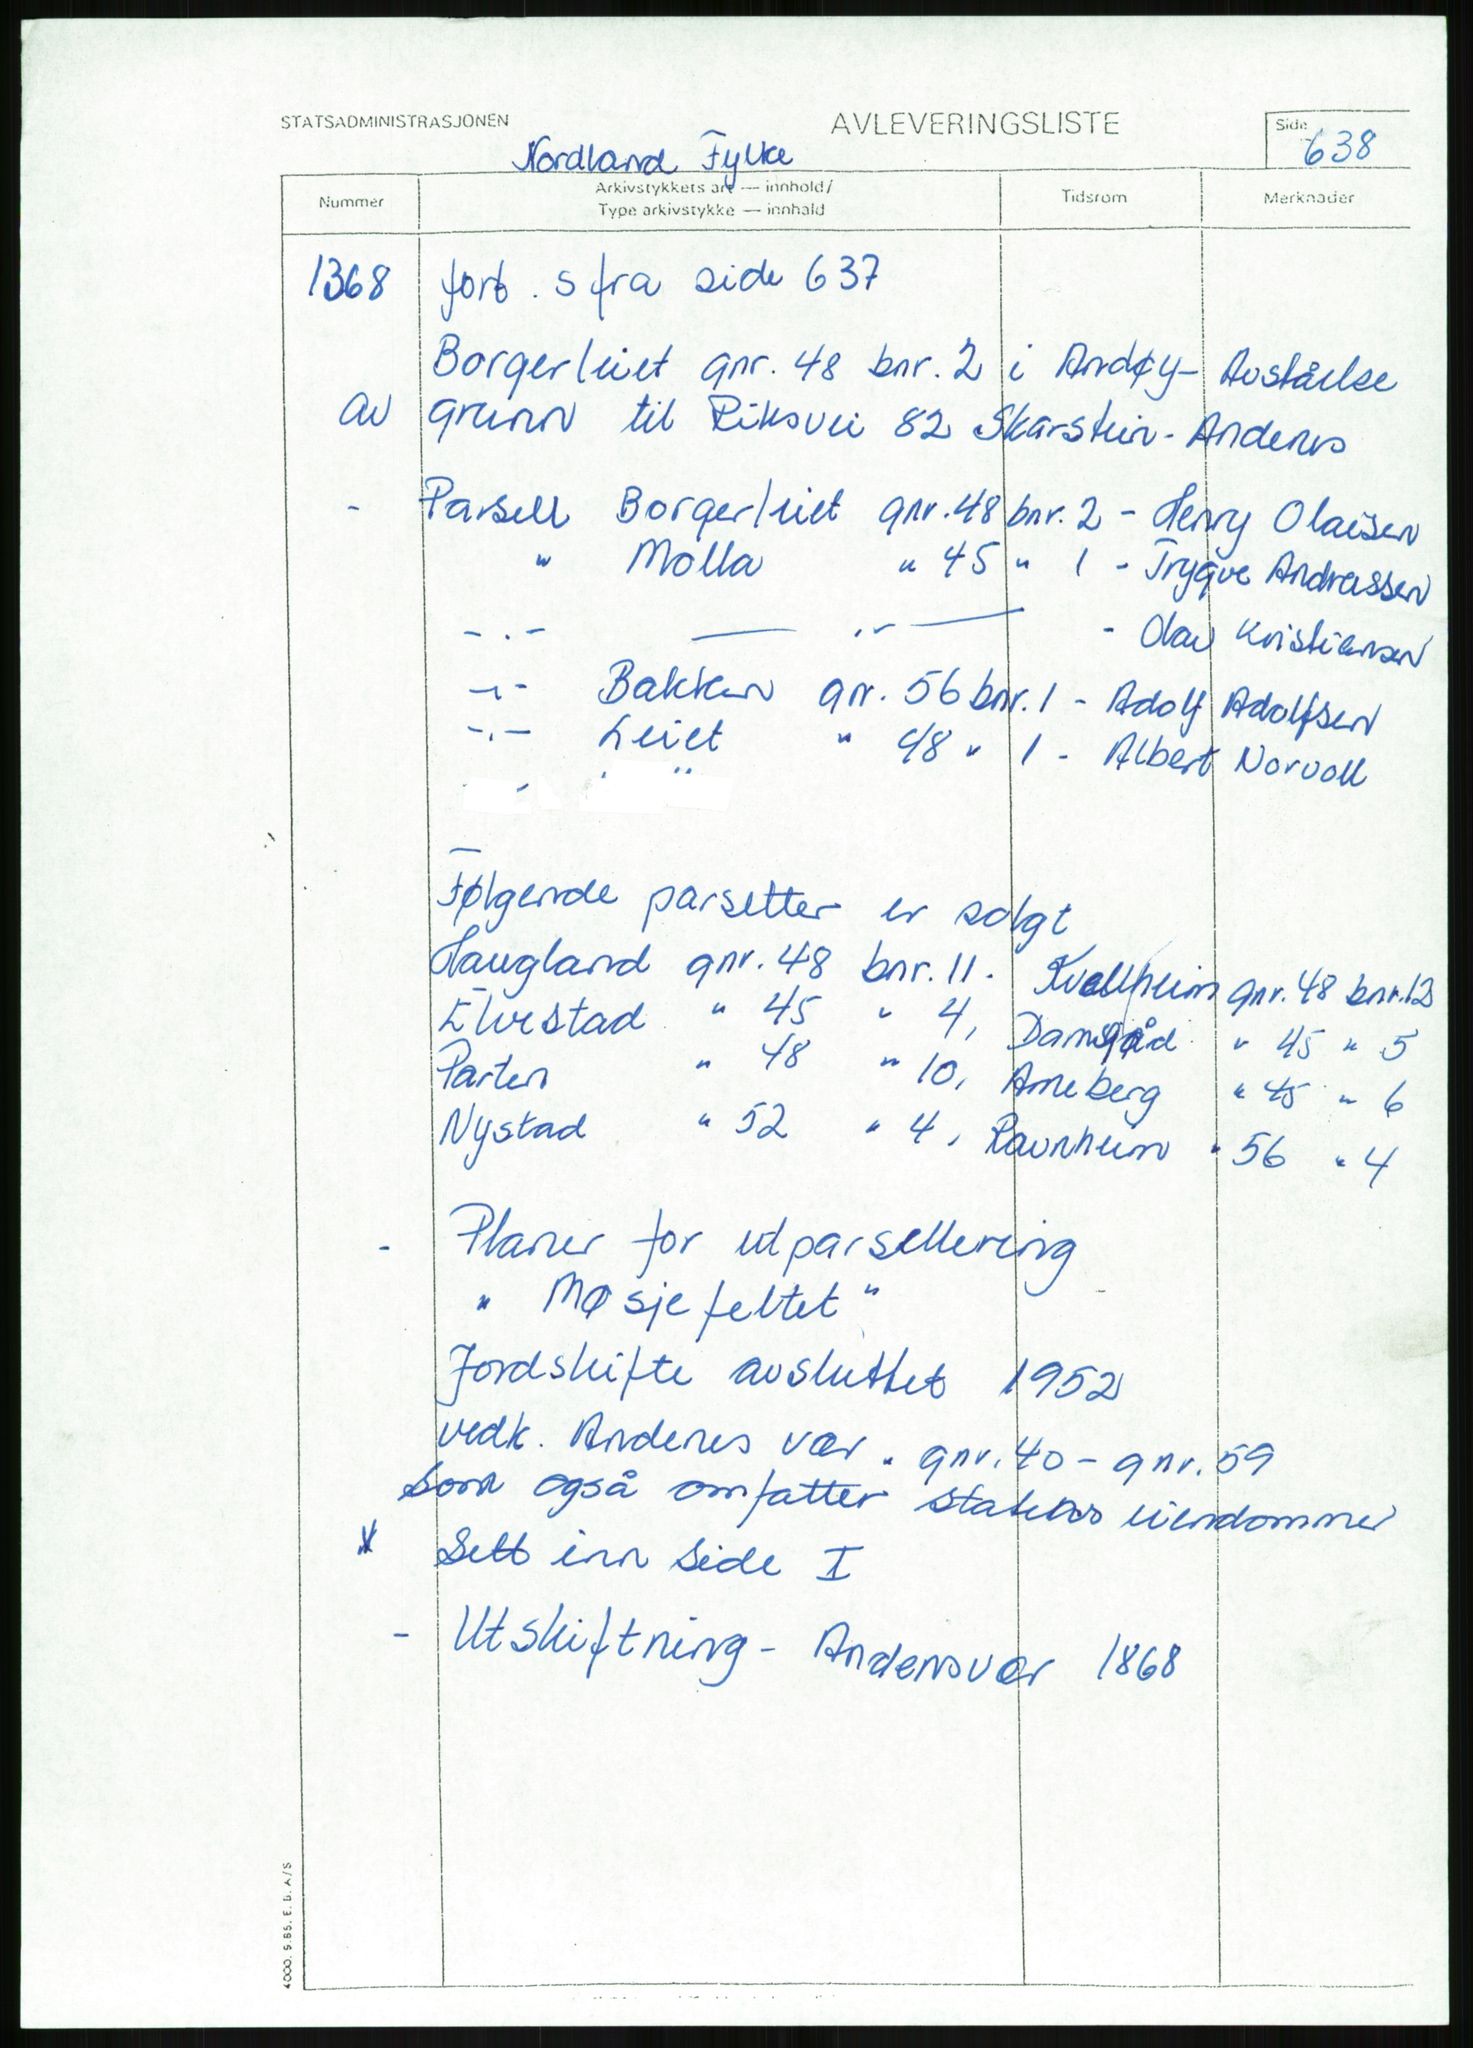 STATSADMINISTRASJONEN
AVLEVERINGSLISTE
Side
638
Nordland Fylke
Nummer
Arkivstykkets art — innhold/
Type arkivstykke — innhald
Tidsrom
Merknader
1368 fort. s fra side 637
Borgerleiet gnr. 48 bnr. 2 i Andøy - Avståelse
av grunn til Riksvei 82 Skarstein - Andenes
- Parsell Borgerleiet gnr. 48 bnr. 2 - Henry Olaisen
" Molla " 45 " 1 - Trygve Andreassen
- . - — . - — - Olav Kristiansen
- . - Bakken gnr. 56 bnr. 1 - Adolf Adolfsen
- . - Leiet " 48 " 1 - Albert Norvoll
Følgende parseller er solgt
Haugland gnr. 48 bnr. 11. Kvellheim gnr. 48 bnr. 12
Elvestad " 45 " 4, Damsgård " 45 " 5
Parten " 48 " 10, Arneberg " 45 " 6
Nystad " 52 " 4, Ravnheim " 56 " 4
- Planer for utparsellering
" Møsjefeltet "
Jordskifte avsluttet 1952
vedk. Andenes vær. gnr. 40 - gnr. 59
som også omfatter statens eiendommer
* Sett inn side I
- Utskiftning - Andenesvær 1868
4000. 9.85. E. B. A/S